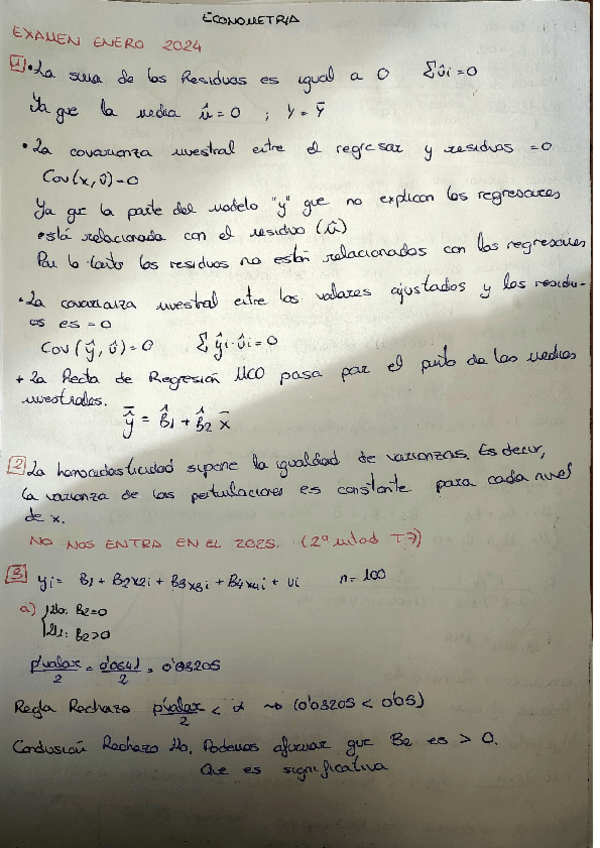 ECONOMETRIA
EXAMEN ENERO 2024
1 • La suma de los Residuos es igual a 0 Σûi = 0
Ya que la media û = 0 ; Y = Ȳ
• La covarianza muestral entre el regresor y residuos = 0
Cov(x, û) = 0
Ya que la parte del modelo "y" que no explican los regresores
está relacionada con el residuo (û)
Por lo tanto los residuos no están relacionados con los regresores
• La covarianza muestral entre los valores ajustados y los residu-
os es = 0
Cov(ŷ, û) = 0 Σŷi·ûi = 0
+ La Recta de Regresión MCO pasa por el punto de las medias
muestrales.
ŷ̄ = B̂1 + B̂2 x̄
2 La homocedasticidad supone la igualdad de varianzas. Es decir,
la varianza de las perturbaciones es constante para cada nivel
de x.
NO NOS ENTRA EN EL 2025. (2ª mitad T7)
3 yi = B1 + B2x2i + B3x3i + B4x4i + ui n = 100
a) H0: B2 = 0
H1: B2 > 0
p'valor/2 = 0'0641/2 = 0'03205
Regla Rechazo p'valor/2 < α → (0'03205 < 0'05)
Conclusión Rechazo H0. Podemos afirmar que B2 es > 0.
Que es significativa